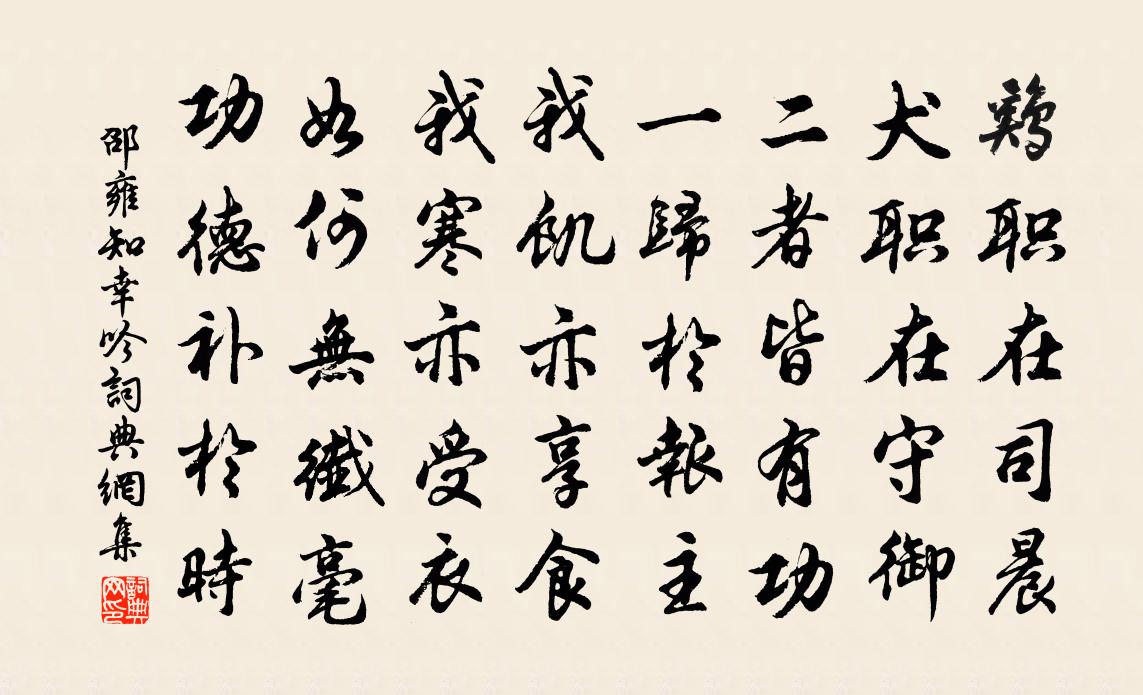 鷄职在司晨
犬职在守御
二者皆有功
一歸於報主
我飢亦享食
我寒亦受衣
如何無纖毫
功德补於時
邵雍知幸吟詞典網集
詞典网印